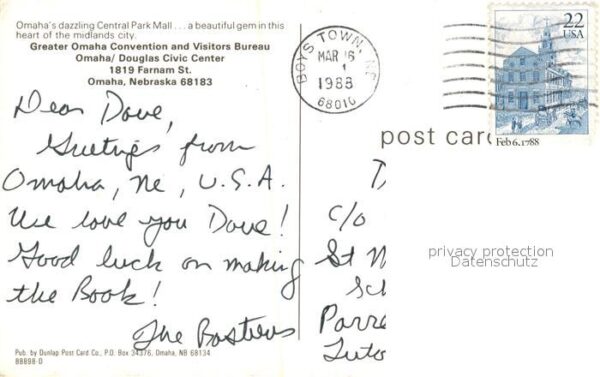 Omaha's dazzling Central Park Mall . . . a beautiful gem in this
heart of the midlands city.
Greater Omaha Convention and Visitors Bureau
Omaha/ Douglas Civic Center
1819 Farnam St.
Omaha, Nebraska 68183
BOYS TOWN, NE
MAR 16
1988
68010
22
USA
Feb 6, 1788
post card
Dear Dave,
Greetings from
Omaha, Ne, U.S.A.
We love you Dave!
Good luck on making
the Book!
The
c/o
St
Pub. by Dunlap Post Card Co., P.O. Box 34376, Omaha, NB 68134
88898-D
privacy protection
Datenschutz